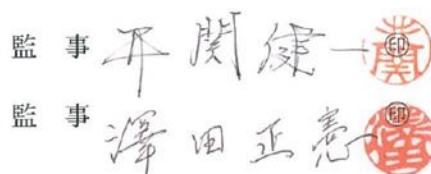 監事 井関健一 ㊞
監事 澤田正憲 ㊞